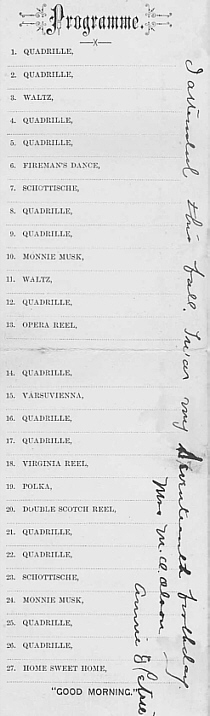 Programme.
1. QUADRILLE,
2. QUADRILLE,
3. WALTZ,
4. QUADRILLE,
5. QUADRILLE,
6. FIREMAN'S DANCE,
7. SCHOTTISCHE,
8. QUADRILLE,
9. QUADRILLE,
10. MONNIE MUSK,
11. WALTZ,
12. QUADRILLE,
13. OPERA REEL,
14. QUADRILLE,
15. VARSUVIENNA,
16. QUADRILLE,
17. QUADRILLE,
18. VIRGINIA REEL,
19. POLKA,
20. DOUBLE SCOTCH REEL,
21. QUADRILLE,
22. QUADRILLE,
23. SCHOTTISCHE,
24. MONNIE MUSK,
25. QUADRILLE,
26. QUADRILLE,
27. HOME SWEET HOME,
"GOOD MORNING."
I attended this ball. It was my Seventeenth birthday.
Mrs M. A.
Annie